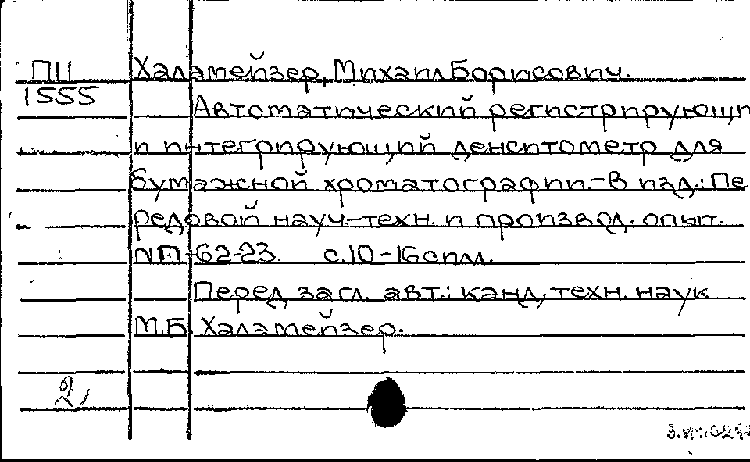 ПЦ Халамейзер, Михаил Борисович.
1555 Автоматический регистрирующий
и интегрирующий денситометр для
бумажной хроматографии.-В изд.: Пе
редовой науч-техн. и производ. опыт.
№П-62-23. с.10-16 с илл.
Перед загл. авт.: канд, техн. наук
М.Б. Халамейзер.
2,